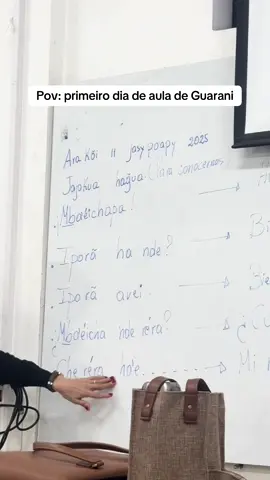 Pov: primeiro dia de aula de Guarani
Ara Kõi 11 jasy poapy 2025
Jajokua hag̃ua Para conocernos
Mbaéichapa!
Iporã ha nde? Bie
Iporã avei. Bie
¿Mbaéicha nde réra? ¿Có
Che réra ha'e........ Mi n